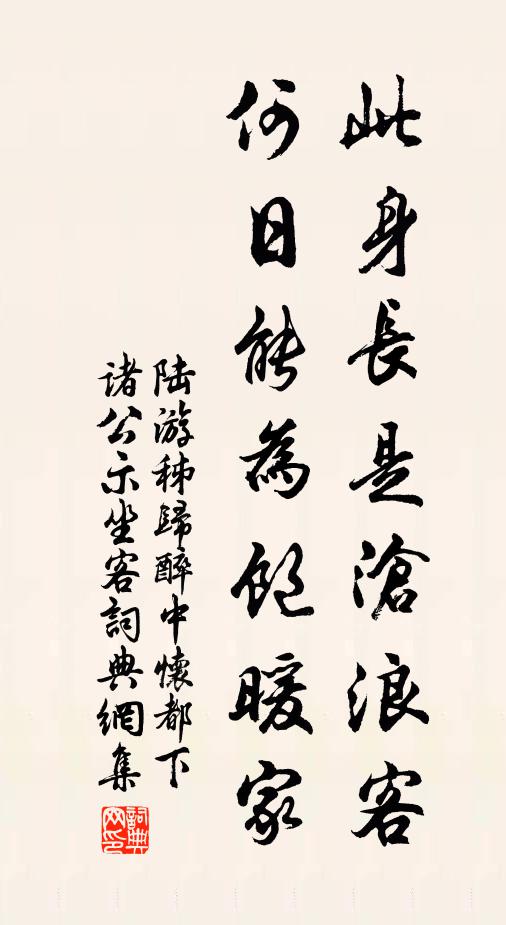 此身長是滄浪客
何日能為飽暖家
陸游秭歸醉中懷都下
诸公示坐客詞典網集
詞典网印